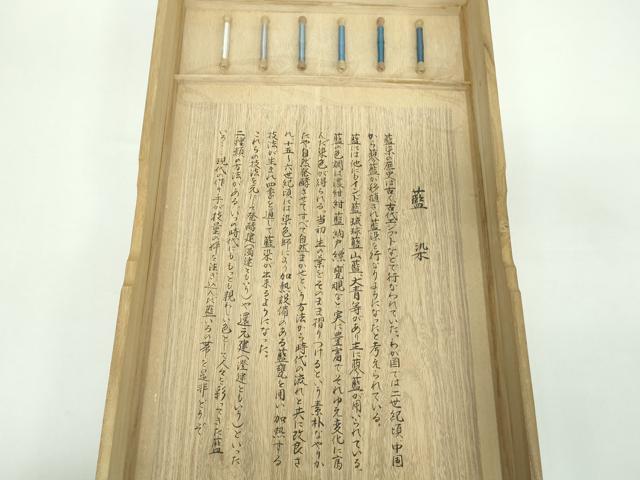 藍染
藍染の歴史は古く古代エジプトなどで行なわれていた。わか国では二世紀頃、中国
から蓼藍が移植され藍染を行なうようになったと考えられている。
藍には他にもインド藍、琉球藍、山藍、大青等があり主に蓼藍が用いられている。
藍の色調は濃紺、紺、藍、納戸、縹、甕覗など実に豊富でそれゆえ変化に富
んだ染色が得られる。当初、生の葉をそのまま摺りつけるという素朴なやりか
たや自然発酵させてすべて自然まかせという方法から時代の流れと共に改良さ
れ、十五〜六世紀頃には染色師により加熱設備のある藍甕を用い加熱する
技法が生まれ四季を通じて藍染が出来るようになった。
これらの技法を元に発酵建(濁建ともいう)や還元建(澄建ともいう)といった
二種類の方法がある。いつの時代にももっとも親わしい色として人々を彩ってきた藍
いろ…現代の作り手が技量の粋を注ぎ込んだ藍いろの帯を是非どうぞ